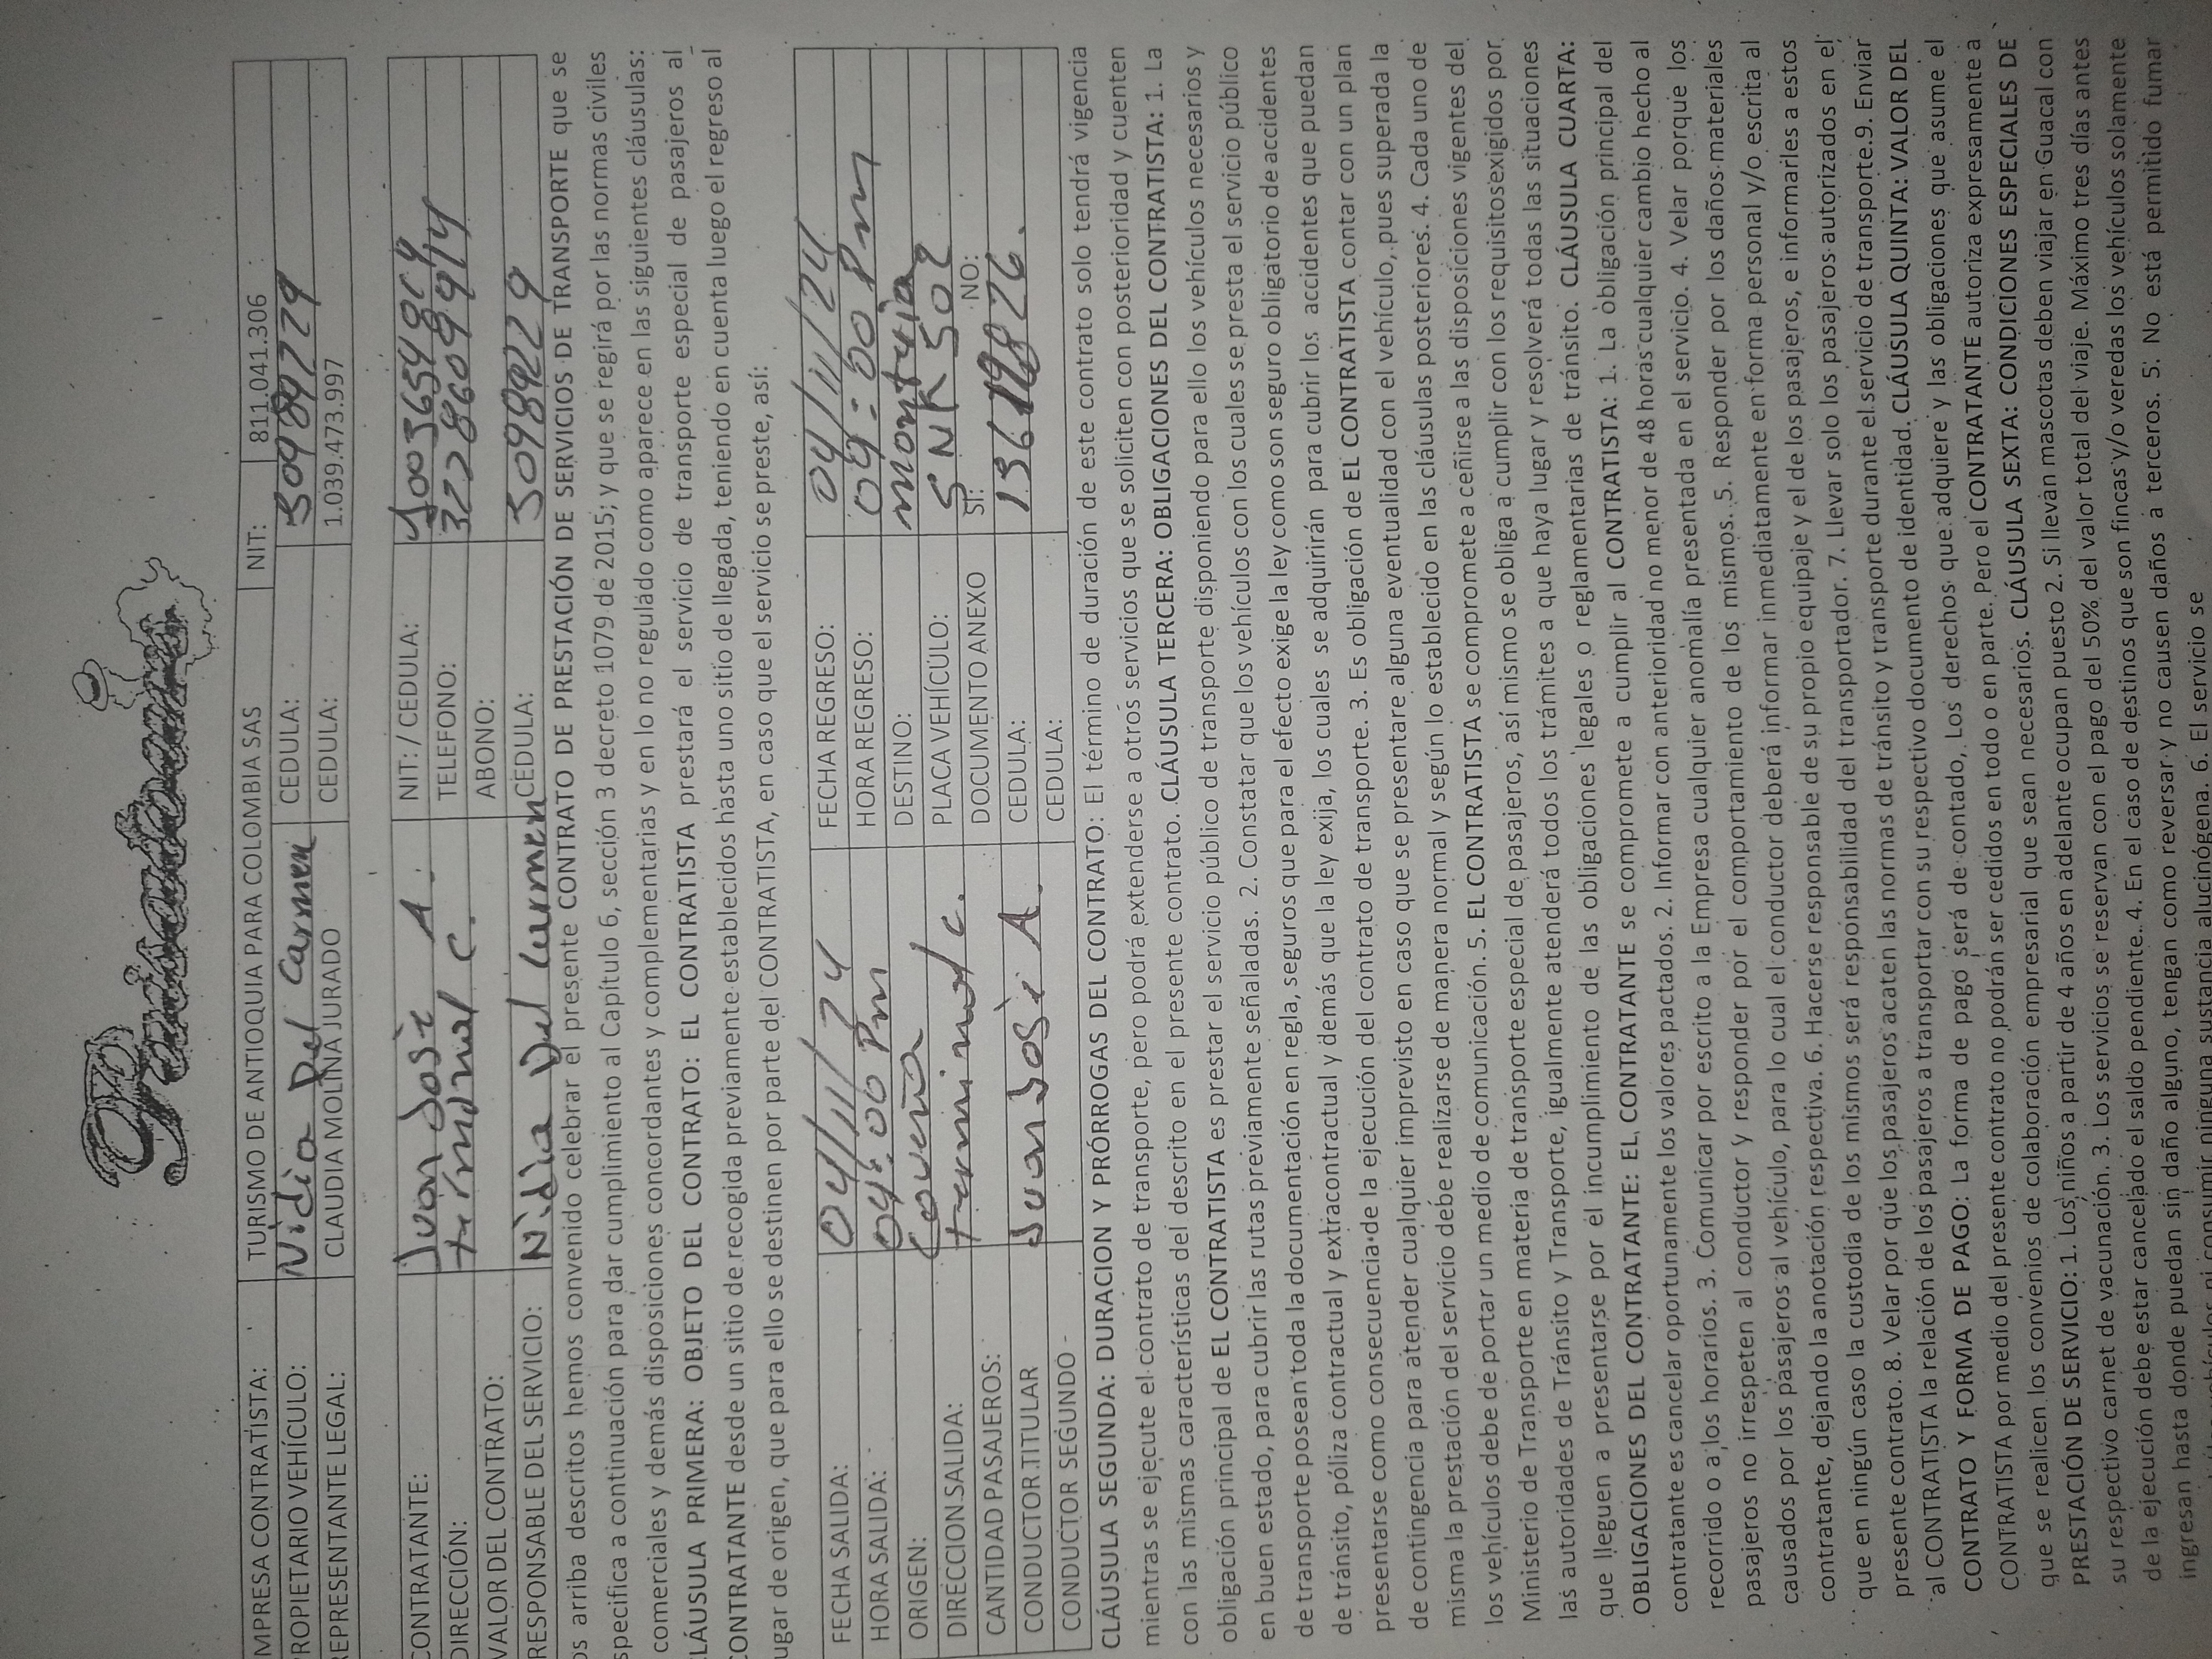 MPRESA CONTRATISTA: TURISMO DE ANTIOQUIA PARA COLOMBIA SAS NIT: 811.041.306
ROPIETARIO VEHÍCULO: Nidia Del Carmen CEDULA: 50989229
EPRESENTANTE LEGAL: CLAUDIA MOLINA JURADO CEDULA: 1.039.473.997
CONTRATANTE: Juan Josè A. NIT: / CEDULA:
DIRECCIÓN: terminal C. TELEFONO:
VALOR DEL CONTRATO: ABONO:
RESPONSABLE DEL SERVICIO: Nidia Del Carmen CÉDULA: 50989229
os arriba descritos hemos convenido celebrar el presente CONTRATO DE PRESTACIÓN DE SERVICIOS DE TRANSPORTE que se
specifica a continuación para dar cumplimiento al Capítulo 6, sección 3 decreto 1079 de 2015; y que se regirá por las normas civiles
comerciales y demás disposiciones concordantes y complementarias y en lo no regulado como aparece en las siguientes cláusulas:
LÁUSULA PRIMERA: OBJETO DEL CONTRATO: EL CONTRATISTA prestará el servicio de transporte especial de pasajeros al
CONTRATANTE desde un sitio de recogida previamente establecidos hasta uno sitio de llegada, teniendo en cuenta luego el regreso al
ugar de origen, que para ello se destinen por parte del CONTRATISTA, en caso que el servicio se preste, así:
FECHA SALIDA: 04/11/24 FECHA REGRESO: 04/11/24
HORA SALIDA: 04:00 Pm HORA REGRESO: 09:00 Pm
ORIGEN: Coveña DESTINO: monteria
DIRECCION SALIDA: terminal C. PLACA VEHÍCULO: SNK 502
CANTIDAD PASAJEROS: DOCUMENTO ANEXO SI: NO:
CONDUCTOR TITULAR Juan Josè A. CEDULA:
CONDUCTOR SEGUNDO CEDULA:
CLÁUSULA SEGUNDA: DURACION Y PRÓRROGAS DEL CONTRATO: El término de duración de este contrato solo tendrá vigencia
mientras se ejecute el contrato de transporte, pero podrá extenderse a otros servicios que se soliciten con posterioridad y cuenten
con las mismas características del descrito en el presente contrato. CLÁUSULA TERCERA: OBLIGACIONES DEL CONTRATISTA: 1. La
obligación principal de EL CONTRATISTA es prestar el servicio público de transporte disponiendo para ello los vehículos necesarios y
en buen estado, para cubrir las rutas previamente señaladas. 2. Constatar que los vehículos con los cuales se presta el servicio público
de transporte posean toda la documentación en regla, seguros que para el efecto exige la ley como son seguro obligatorio de accidentes
de tránsito, póliza contractual y extracontractual y demás que la ley exija, los cuales se adquirirán para cubrir los accidentes que puedan
presentarse como consecuencia de la ejecución del contrato de transporte. 3. Es obligación de EL CONTRATISTA contar con un plan
de contingencia para atender cualquier imprevisto en caso que se presentare alguna eventualidad con el vehículo, pues superada la
misma la prestación del servicio debe realizarse de manera normal y según lo establecido en las cláusulas posteriores. 4. Cada uno de
los vehículos debe de portar un medio de comunicación. 5. EL CONTRATISTA se compromete a ceñirse a las disposiciones vigentes del
Ministerio de Transporte en materia de transporte especial de pasajeros, así mismo se obliga a cumplir con los requisitos exigidos por
las autoridades de Tránsito y Transporte, igualmente atenderá todos los trámites a que haya lugar y resolverá todas las situaciones
que lleguen a presentarse por el incumplimiento de las obligaciones legales o reglamentarias de tránsito. CLÁUSULA CUARTA:
OBLIGACIONES DEL CONTRATANTE: EL CONTRATANTE se compromete a cumplir al CONTRATISTA: 1. La obligación principal del
contratante es cancelar oportunamente los valores pactados. 2. Informar con anterioridad no menor de 48 horas cualquier cambio hecho al
recorrido o a los horarios. 3. Comunicar por escrito a la Empresa cualquier anomalía presentada en el servicio. 4. Velar porque los
pasajeros no irrespeten al conductor y responder por el comportamiento de los mismos. 5. Responder por los daños materiales
causados por los pasajeros al vehículo, para lo cual el conductor deberá informar inmediatamente en forma personal y/o escrita al
contratante, dejando la anotación respectiva. 6. Hacerse responsable de su propio equipaje y el de los pasajeros, e informarles a estos
que en ningún caso la custodia de los mismos será responsabilidad del transportador. 7. Llevar solo los pasajeros autorizados en el
presente contrato. 8. Velar por que los pasajeros acaten las normas de tránsito y transporte durante el servicio de transporte. 9. Enviar
al CONTRATISTA la relación de los pasajeros a transportar con su respectivo documento de identidad. CLÁUSULA QUINTA: VALOR DEL
CONTRATO Y FORMA DE PAGO: La forma de pago será de contado, Los derechos que adquiere y las obligaciones que asume el
CONTRATISTA por medio del presente contrato no podrán ser cedidos en todo o en parte. Pero el CONTRATANTE autoriza expresamente a
que se realicen los convenios de colaboración empresarial que sean necesarios. CLÁUSULA SEXTA: CONDICIONES ESPECIALES DE
PRESTACIÓN DE SERVICIO: 1. Los niños a partir de 4 años en adelante ocupan puesto 2. Si llevan mascotas deben viajar en Guacal con
su respectivo carnet de vacunación. 3. Los servicios se reservan con el pago del 50% del valor total del viaje. Máximo tres días antes
de la ejecución debe estar cancelado el saldo pendiente. 4. En el caso de destinos que son fincas y/o veredas los vehículos solamente
ingresan hasta donde puedan sin daño alguno, tengan como reversar y no causen daños a terceros. 5. No está permitido fumar
ni consumir ninguna sustancia alucinógena. 6. El servicio se